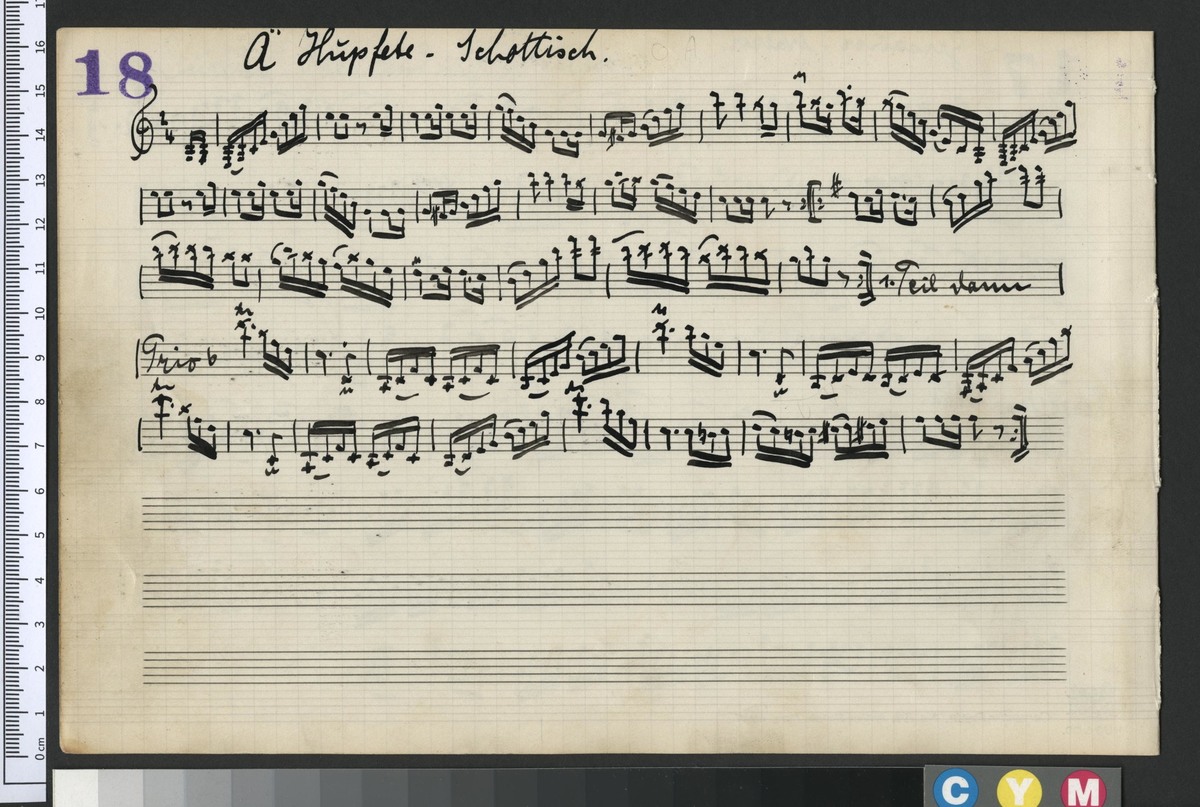 18
Ä Hüpfete - Schottisch.
2
4
1. Teil dann
Trio
17
16
15
14
13
12
11
10
9
8
7
6
5
4
3
2
1
0 cm
C Y M